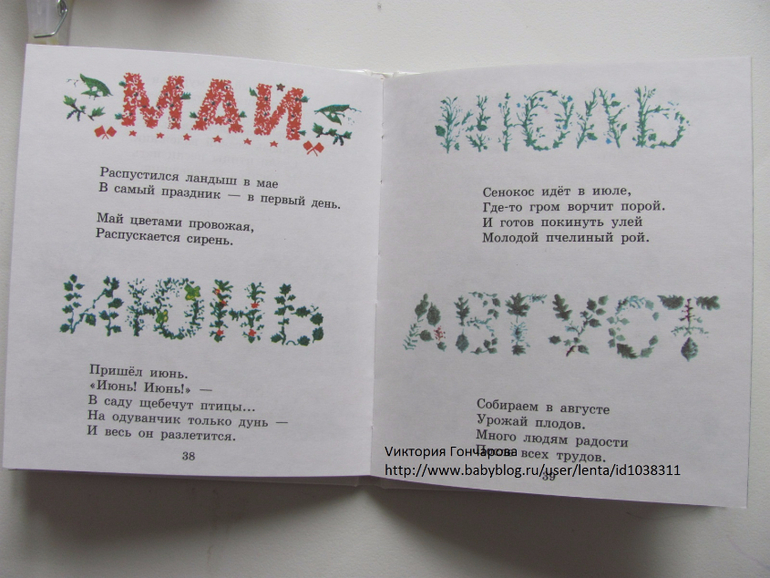 МАЙ
Распустился ландыш в мае
В самый праздник — в первый день.
Май цветами провожая,
Распускается сирень.
ИЮНЬ
Пришёл июнь.
«Июнь! Июнь!» —
В саду щебечут птицы...
На одуванчик только дунь —
И весь он разлетится.
38
ИЮЛЬ
Сенокос идёт в июле,
Где-то гром ворчит порой.
И готов покинуть улей
Молодой пчелиный рой.
АВГУСТ
Собираем в августе
Урожай плодов.
Много людям радости
После всех трудов.
39
Виктория Гончарова
http://www.babyblog.ru/user/lenta/id1038311